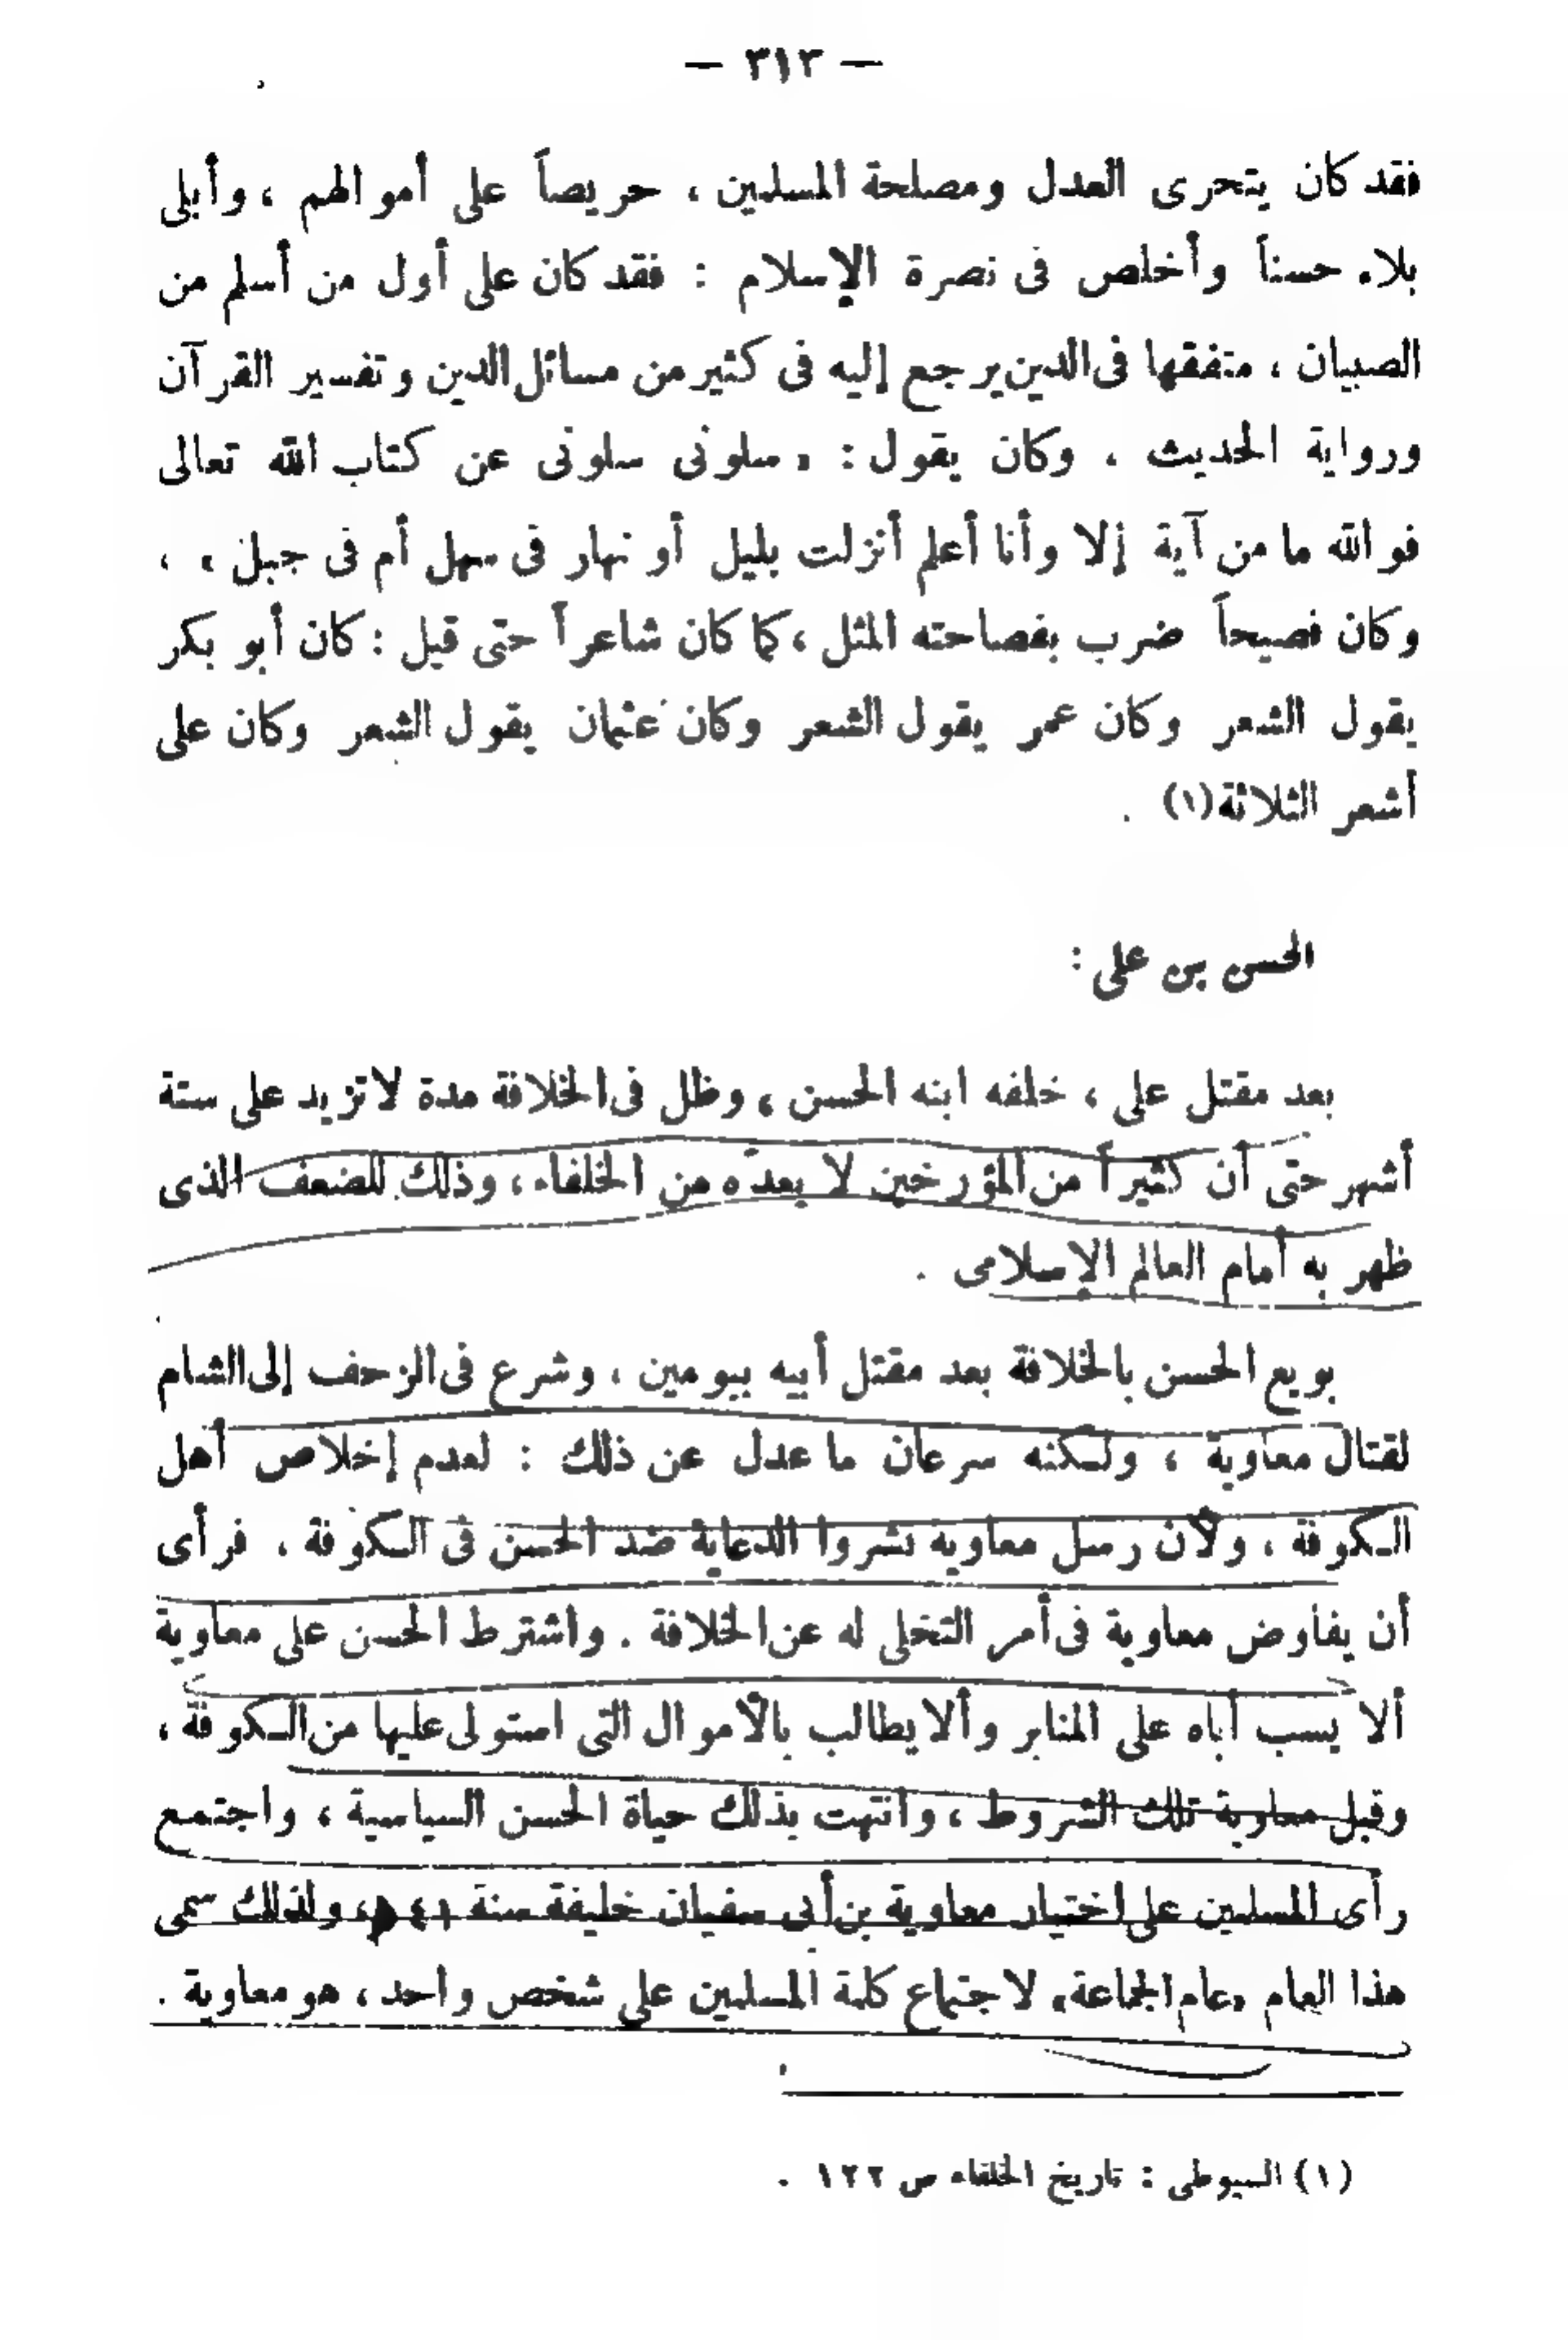 — ٣١٣ —
فقد كان يتحرى العدل ومصلحة المسلمين ، حريصاً على أموالهم ، وأبلى
بلاء حسناً وأخلص فى نصرة الإسلام : فقد كان على أول من أسلم من
الصبيان ، متفقها فى الدين يرجع إليه فى كثير من مسائل الدين وتفسير القرآن
ورواية الحديث . وكان يقول : « سلونى سلونى عن كتاب الله تعالى
فوالله ما من آية إلا وأنا أعلم أنزلت بليل أو نهار فى سهل أم فى جبل » ،
وكان فصيحاً ضرب بفصاحته المثل ، كما كان شاعراً حتى قيل : كان أبو بكر
يقول الشعر وكان عمر يقول الشعر وكان عثمان يقول الشعر وكان على
أشعر الثلاثة (١) .
الحسن بن على :
بعد مقتل على ، خلفه ابنه الحسن ، وظل فى الخلافة مدة لا تزيد على ستة
أشهر حتى أن كثيراً من المؤرخين لا يعدّه من الخلفاء ، وذلك للضعف الذى
ظهر به أمام العالم الإسلامى .
بويع الحسن بالخلافة بعد مقتل أبيه بيومين ، وشرع فى الزحف إلى الشام
لقتال معاوية ، ولكنه سرعان ما عدل عن ذلك : لعدم إخلاص أهل
الكوفة ، ولأن رسل معاوية نشروا الدعاية ضد الحسن فى الكوفة . فرأى
أن يفاوض معاوية فى أمر التخلى له عن الخلافة . واشترط الحسن على معاوية
ألا يسب أباه على المنابر وألا يطالب بالأموال التى استولى عليها من الكوفة ،
وقبل معاوية تلك الشروط ، وانتهت بذلك حياة الحسن السياسية ، واجتمع
رأى المسلمين على اختيار معاوية بن أبى سفيان خليفة سنة ٤١ هـ ، ولذلك سمى
هذا العام «عام الجماعة» لاجتماع كلمة المسلمين على شخص واحد ، هو معاوية .
(١) السيوطى : تاريخ الخلفاء ص ١٢٢ .